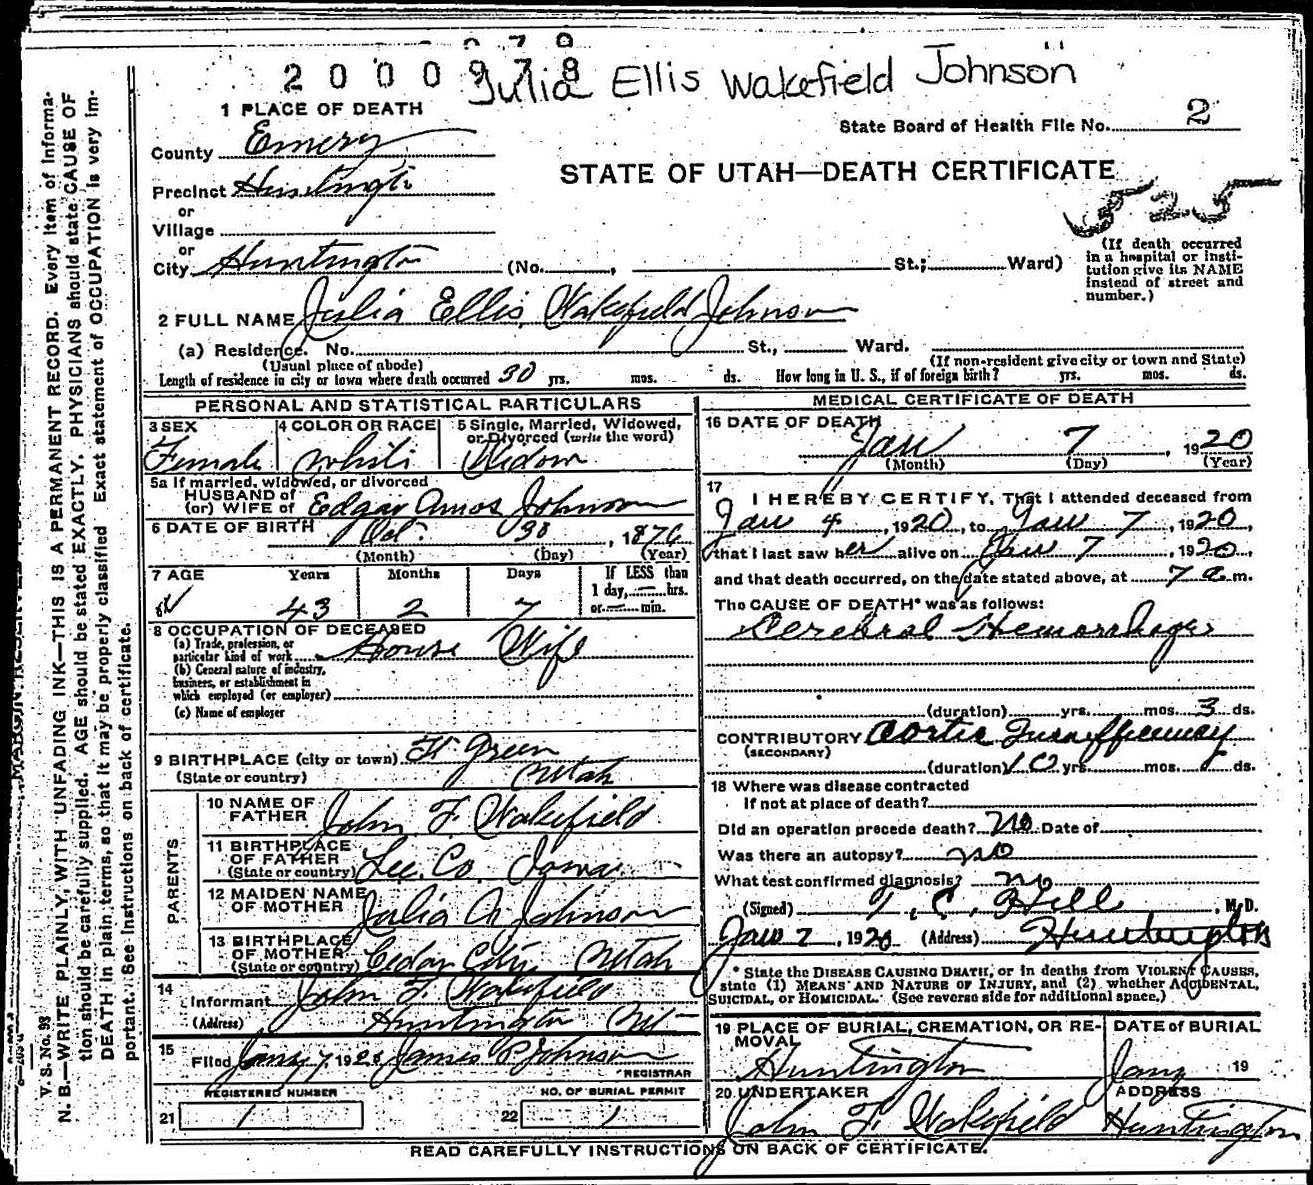 2 0 0 0 9 7 8
Julia Ellis Wakefield Johnson
1 PLACE OF DEATH
State Board of Health File No. 2
County Emery
STATE OF UTAH—DEATH CERTIFICATE
Precinct Huntington
525
or
Village
or
City Huntington (No. , St.; Ward)
(If death occurred in a hospital or institution give its NAME instead of street and number.)
2 FULL NAME Julia Ellis Wakefield Johnson
(a) Residence. No. St., Ward.
(Usual place of abode) (If non-resident give city or town and State)
Length of residence in city or town where death occurred 30 yrs. mos. ds. How long in U. S., if of foreign birth? yrs. mos. ds.
PERSONAL AND STATISTICAL PARTICULARS
3 SEX 4 COLOR OR RACE 5 Single, Married, Widowed, or Divorced (write the word)
Female White Widow
5a If married, widowed, or divorced
HUSBAND of
(or) WIFE of Edgar Amos Johnson
6 DATE OF BIRTH Oct. 30, 1876
(Month) (Day) (Year)
7 AGE Years Months Days If LESS than 1 day, hrs. or min.
43 2 7
8 OCCUPATION OF DECEASED
(a) Trade, profession, or particular kind of work House Wife
(b) General nature of industry, business, or establishment in which employed (or employer)
(c) Name of employer
9 BIRTHPLACE (city or town) Ft Green
(State or country) Utah
PARENTS
10 NAME OF FATHER John F. Wakefield
11 BIRTHPLACE OF FATHER (State or country) Lee. Co. Iowa
12 MAIDEN NAME OF MOTHER Julia A Johnson
13 BIRTHPLACE OF MOTHER (State or country) Cedar City Utah
14 Informant John F. Wakefield
(Address) Huntington Ut
15 Filed Jany 7, 1920 James P Johnson
REGISTRAR
REGISTERED NUMBER NO. OF BURIAL PERMIT
21 1 22 1
MEDICAL CERTIFICATE OF DEATH
16 DATE OF DEATH
Jan 7, 1920
(Month) (Day) (Year)
17 I HEREBY CERTIFY, That I attended deceased from
Jan 4, 1920, to Jan 7, 1920,
that I last saw her alive on Jan 7, 1920,
and that death occurred, on the date stated above, at 7 a.m.
The CAUSE OF DEATH* was as follows:
Cerebral Hemorrhage
(duration) yrs. mos. 3 ds.
CONTRIBUTORY Aortic Insufficiency
(SECONDARY)
(duration) 10 yrs. mos. ds.
18 Where was disease contracted
If not at place of death?
Did an operation precede death? No Date of
Was there an autopsy? no
What test confirmed diagnosis? no
(Signed) T. C. Hill, M. D.
Jan 7, 1920 (Address) Huntington
* State the DISEASE CAUSING DEATH, or in deaths from VIOLENT CAUSES,
state (1) MEANS AND NATURE OF INJURY, and (2) whether ACCIDENTAL,
SUICIDAL, or HOMICIDAL. (See reverse side for additional space.)
19 PLACE OF BURIAL, CREMATION, OR REMOVAL DATE of BURIAL
Huntington Jany 19
20 UNDERTAKER ADDRESS
John F. Wakefield Huntington
READ CAREFULLY INSTRUCTIONS ON BACK OF CERTIFICATE.
V. S. No. 98
N. B.—WRITE PLAINLY, WITH UNFADING INK—THIS IS A PERMANENT RECORD. Every item of informa-
tion should be carefully supplied. AGE should be stated EXACTLY. PHYSICIANS should state CAUSE OF
DEATH in plain terms, so that it may be properly classified. Exact statement of OCCUPATION is very im-
portant. See instructions on back of certificate.